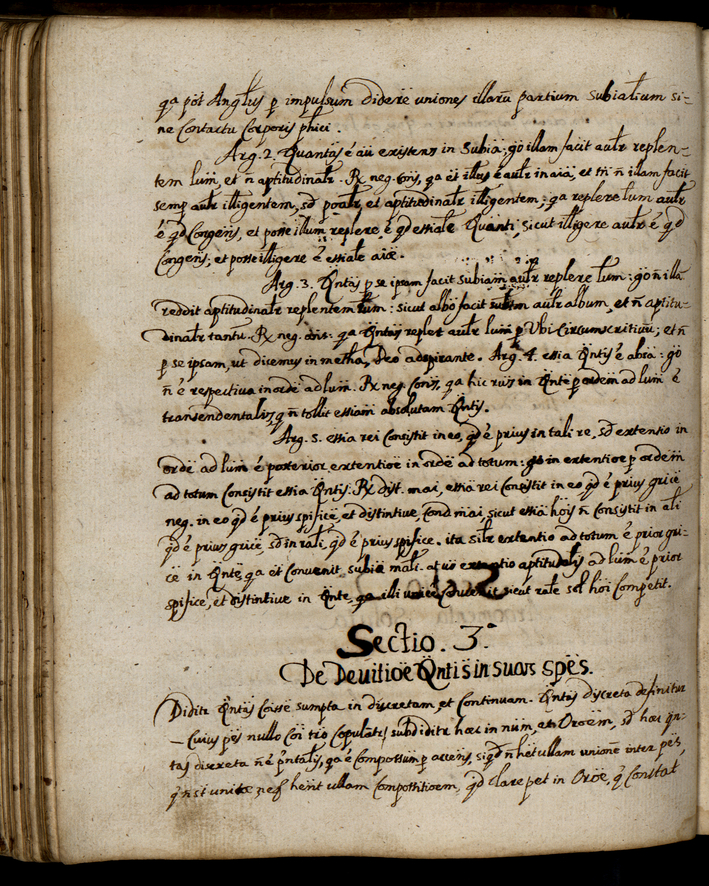 qa pot Anglus p impulsum didere uniones illarũ partium subialium si=
ne Contactu Corporis phici.
Arg. 2. Quantas é aũ existens in Subia: go illam facit autr replen=
tem lum, et ñ aptitudinatr. Rx neg. Cons, qa et illus é autr in aia, et tñ ñ illam facit
semp autr illigentem, sd potatr, et aptitudinatr illigentem; qa replere lum autr
é qd Congens, et posse illum replere é qd essiale Quanti, sicut illigere autr é qd
Congens, et posse illigere é essiale aiæ.
Arg. 3. Qntas p se ipsam facit subiam autr replere lum: go ñ illã
reddit aptitudinatr replentem lum: sicut albo facit autr album, et ñ aptitu-
dinatr tantũ. Rx neg. ans: qa Qntas replet autr lum p Ubi Circumscritivũ; et ñ
p se ipsam, ut dicemus in metha, Deo adspirante. Arg. 4. essia Qntis é absa: go
ñ é respectiva in orde ad lum. Rx neg. Cons, qa hic in Qnte p ordem ad lum é
transendentalis q ñ tollit essiam absolutam Qntis.
Arg. 5. essia rei Consistit in eo, qd é prius in tali re, sd extentio in
orde ad lum é posterior extentioe in orde ad totum: go in extentioe p ordem
ad totum Consistit essia Qntis. Rx dist. mai, essia rei Consistit in eo qd é prius grice
neg. in eo qd é prius spifice, et distintive, Cond mai, sicut essia hois ñ Consistit in ali
qd é prius grice, sd in rali, qd é prius spifice. ita silr extentio ad totum é prior gri-
ce in Qnte, qa et Convenit subiæ mali. at vo extentio aptitudis ad lum é prior
spifice, et distintive in Qnte, qa illi unice Convenit sicut rale sol hoi Competit.
Sectio. 3.ª
De Devitioe Qntis in suas spēs.
Diditr Qntas Coisse sumpta in discretam, et Continuam. Qntas discreta definitur
— Cuius pes nullo Coi trio Copulatr, subdiditr hæc in num, et Oroem, sd hæc qn-
tas discreta ñ é pntalis, qa é Compossum p accens, siqd ñ het ullam unionē inter pes,
q ñ st unitæ, neq hent ullam Compossitioem, qd clare pet in Oroe, q Constat